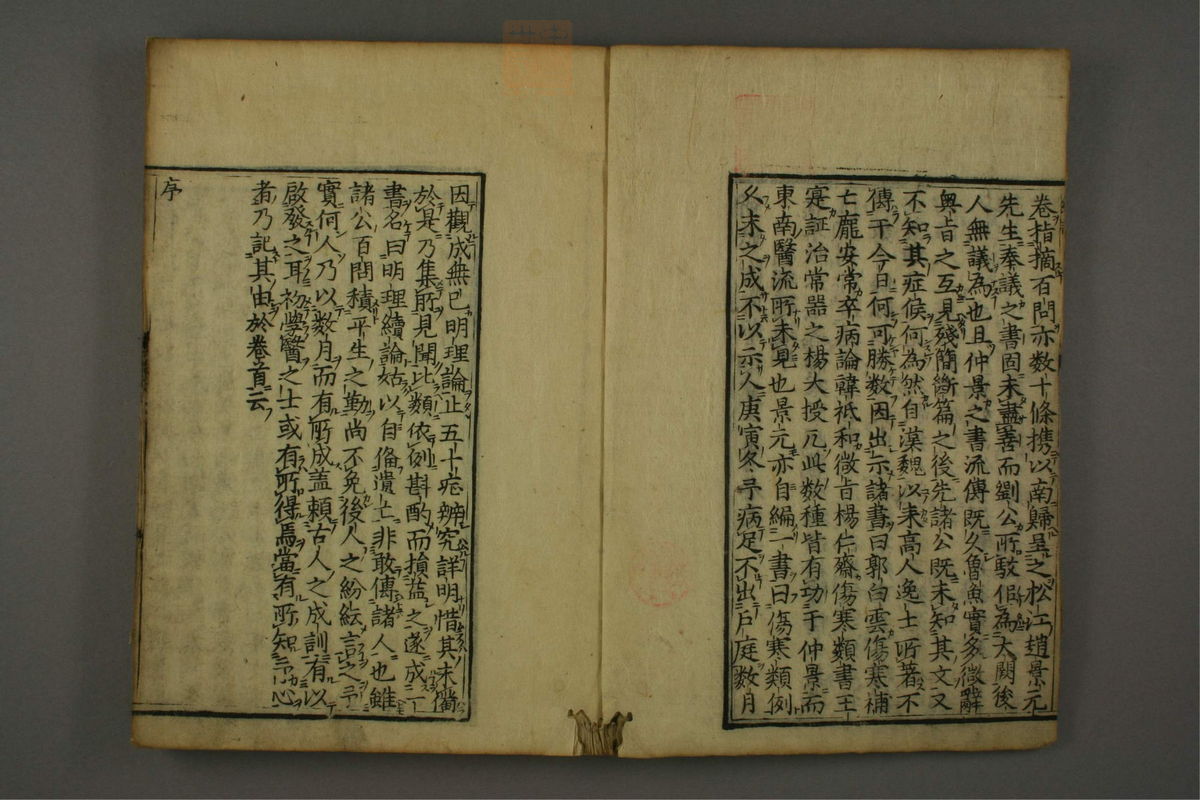 卷指摘百問亦数十條携以南歸呈之松江趙景元
先生奉議之書固未盡善而劉公所駁佀為太闕後
人無議為也且仲景之書流傳既久魯魚實多微辭
奥旨之互見殘簡斷篇之後先諸公既未知其文又
不知其症候何為然自漢魏以来高人逸士所著不
傳于今日何可勝数因出示諸書曰郭白雲傷寒補
亡龐安常卒病論韓祗和微旨楊仁齋傷寒類書王
寔証治常器之楊大授凡此数種皆有功于仲景而
東南醫流所未見也景元亦自編一書曰傷寒類例
久未之成不以示人庚寅冬予病足不出戶庭数月
因觀成無已明理論止五十症辨究詳明惜其未備
於是乃集所見聞比類依例斟酌而損益之遂成一
書名曰明理續論姑以自俻遺亡非敢傳諸人也雖
諸公百問積平生之勤尚不免後人之紛紜言之予
實何人乃以数月而有所成盖頼古人之成訓有以
啟發之耳初學醫之士或有所得焉當有所知
者乃記其由於卷首云
序